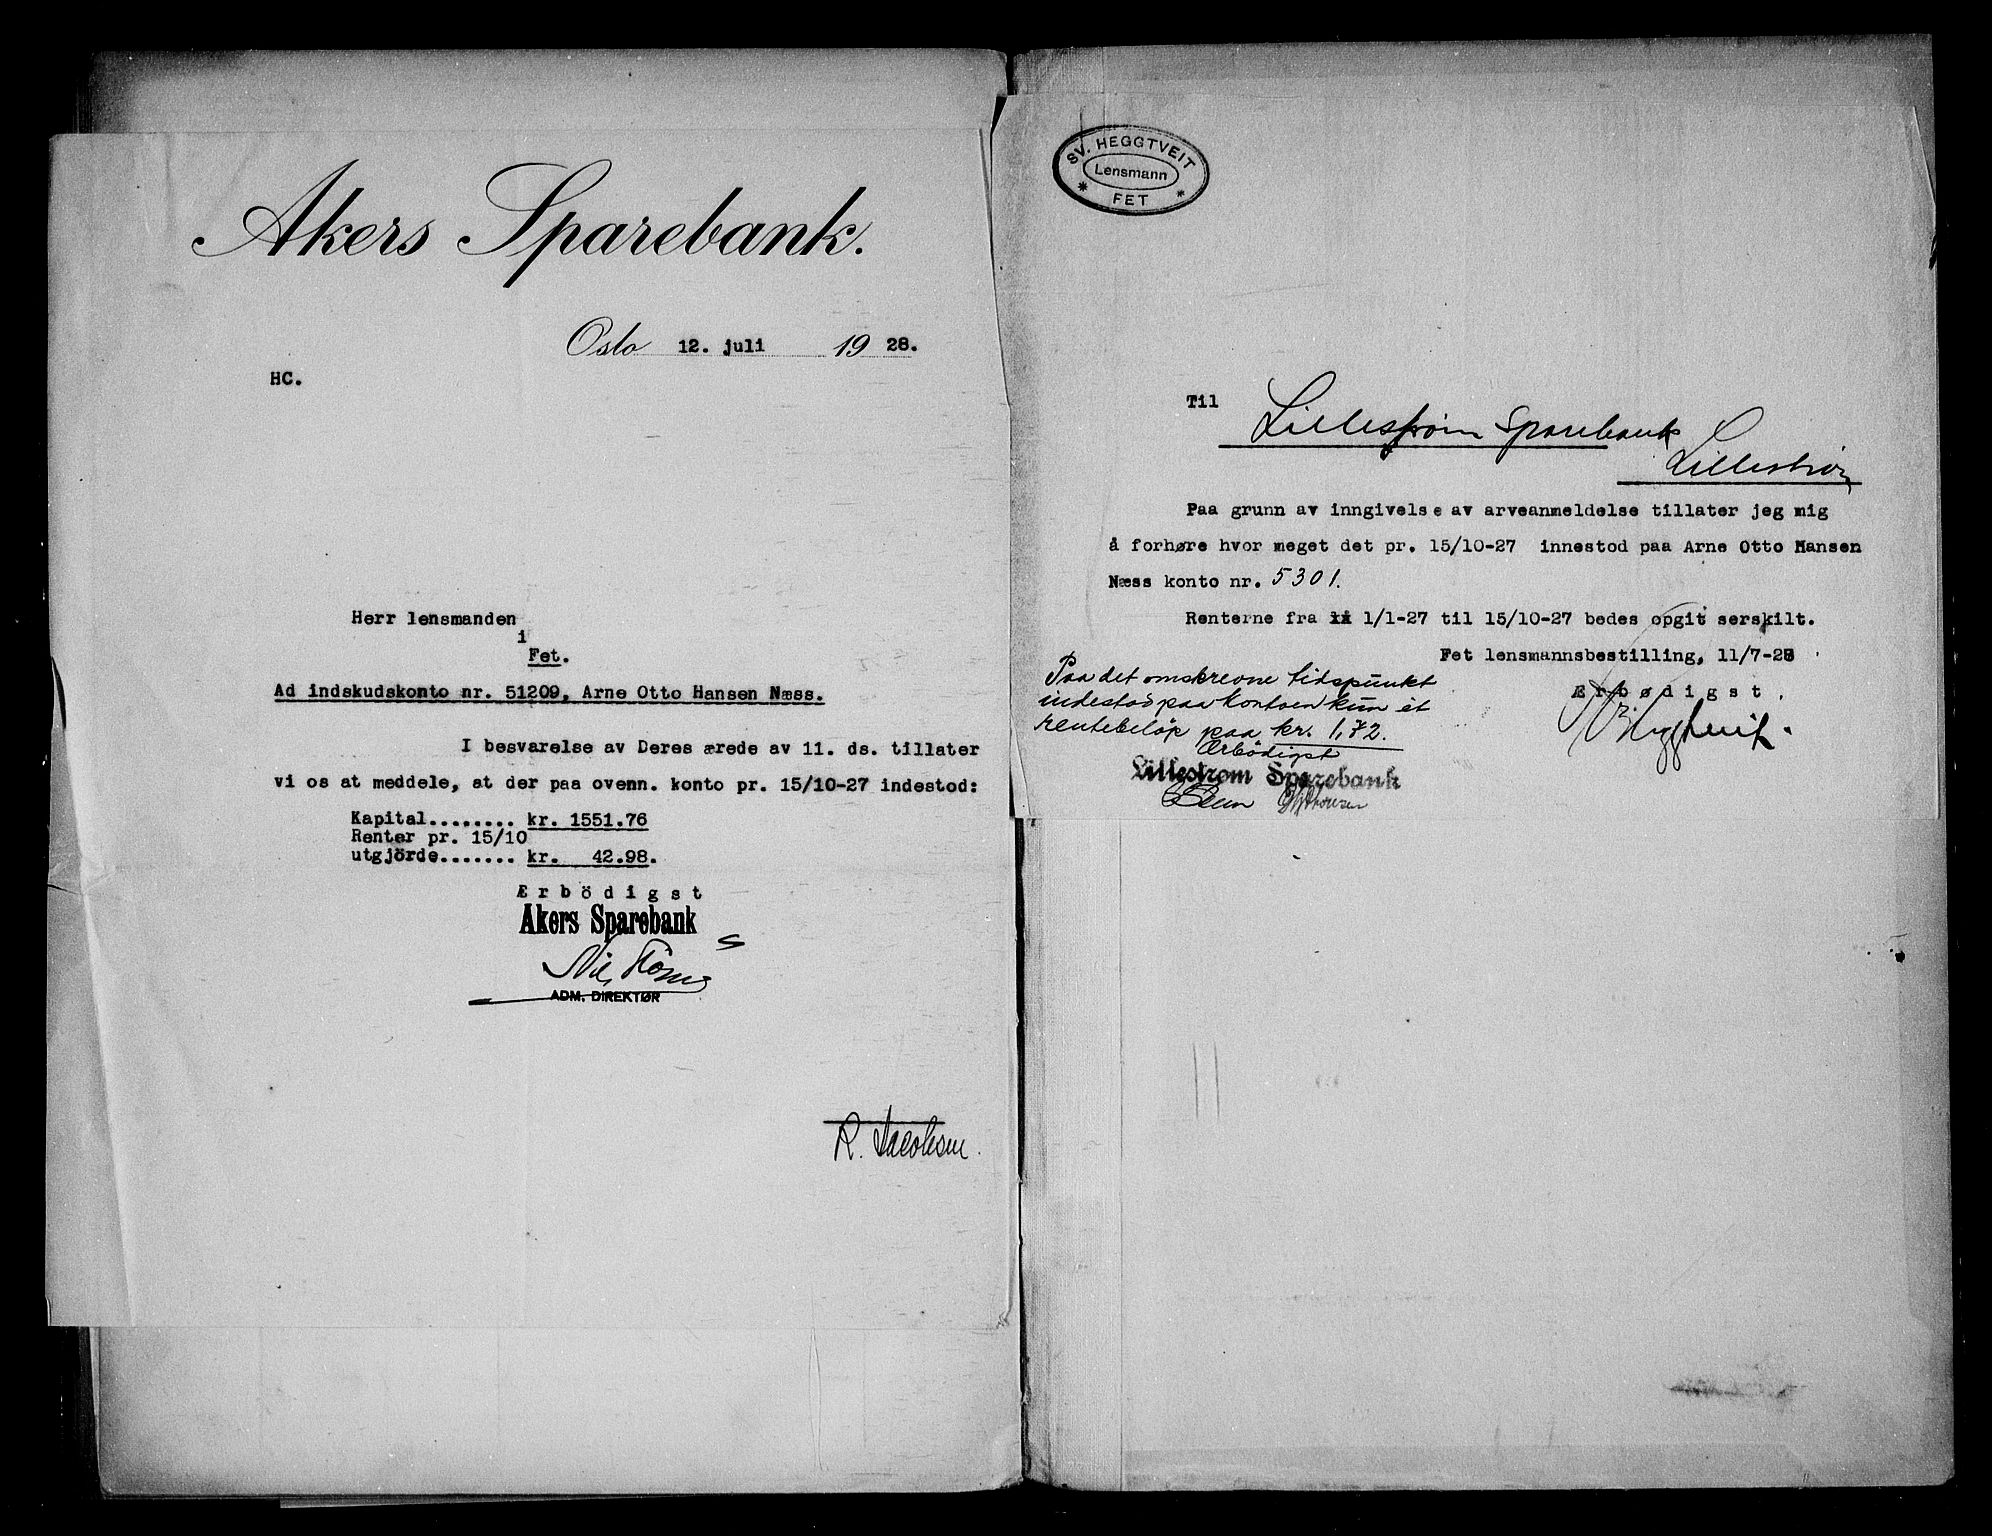 Akers Sparebank.
Oslo 12. juli 1928.
HC.
Herr lensmanden
i
Fet.
Ad indskudskonto nr. 51209, Arne Otto Hansen Næss.
I besvarelse av Deres ærede av 11. ds. tillater
vi os at meddele, at der paa ovenn. konto pr. 15/10-27 indestod:
Kapital........ kr. 1551.76
Renter pr. 15/10
utgjörde....... kr. 42.98.
Ærbödigst
Akers Sparebank
ADM. DIREKTØR
R. Jacobsen.
SV. HEGGTVEIT
Lensmann
* FET *
Til
Lillestrøm Sparebank
Lillestrøm
Paa grunn av inngivelse av arveanmeldelse tillater jeg mig
å forhøre hvor meget det pr. 15/10-27 innestod paa Arne Otto Hansen
Næss konto nr. 5301.
Renterne fra 1/1-27 til 15/10-27 bedes opgit serskilt.
Fet lensmannsbestilling, 11/7-28
Ærbødigst.
Sv. Heggtveit.
Paa det omskrevne tidspunkt
indestod paa kontoen kun et
rentebeløp paa kr. 1,72.
Ærbödigst
Lillestrøm Sparebank